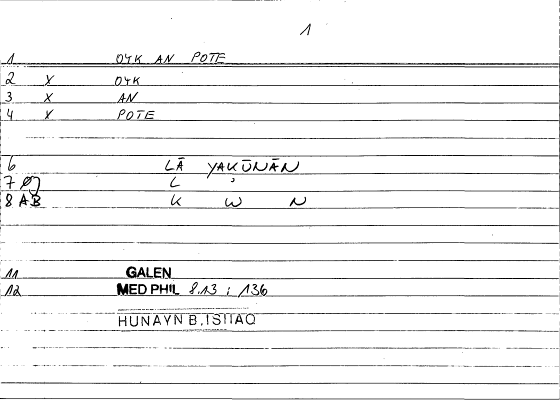 1
1 OYK AN POTE
2 X OYK
3 X AN
4 X POTE
6 LĀ YAKŪNĀN
7 L ʾ
8 AB K W N
11 GALEN
12 MED PHIL 8.13 ; 136
HUNAYN B.ISHAQ